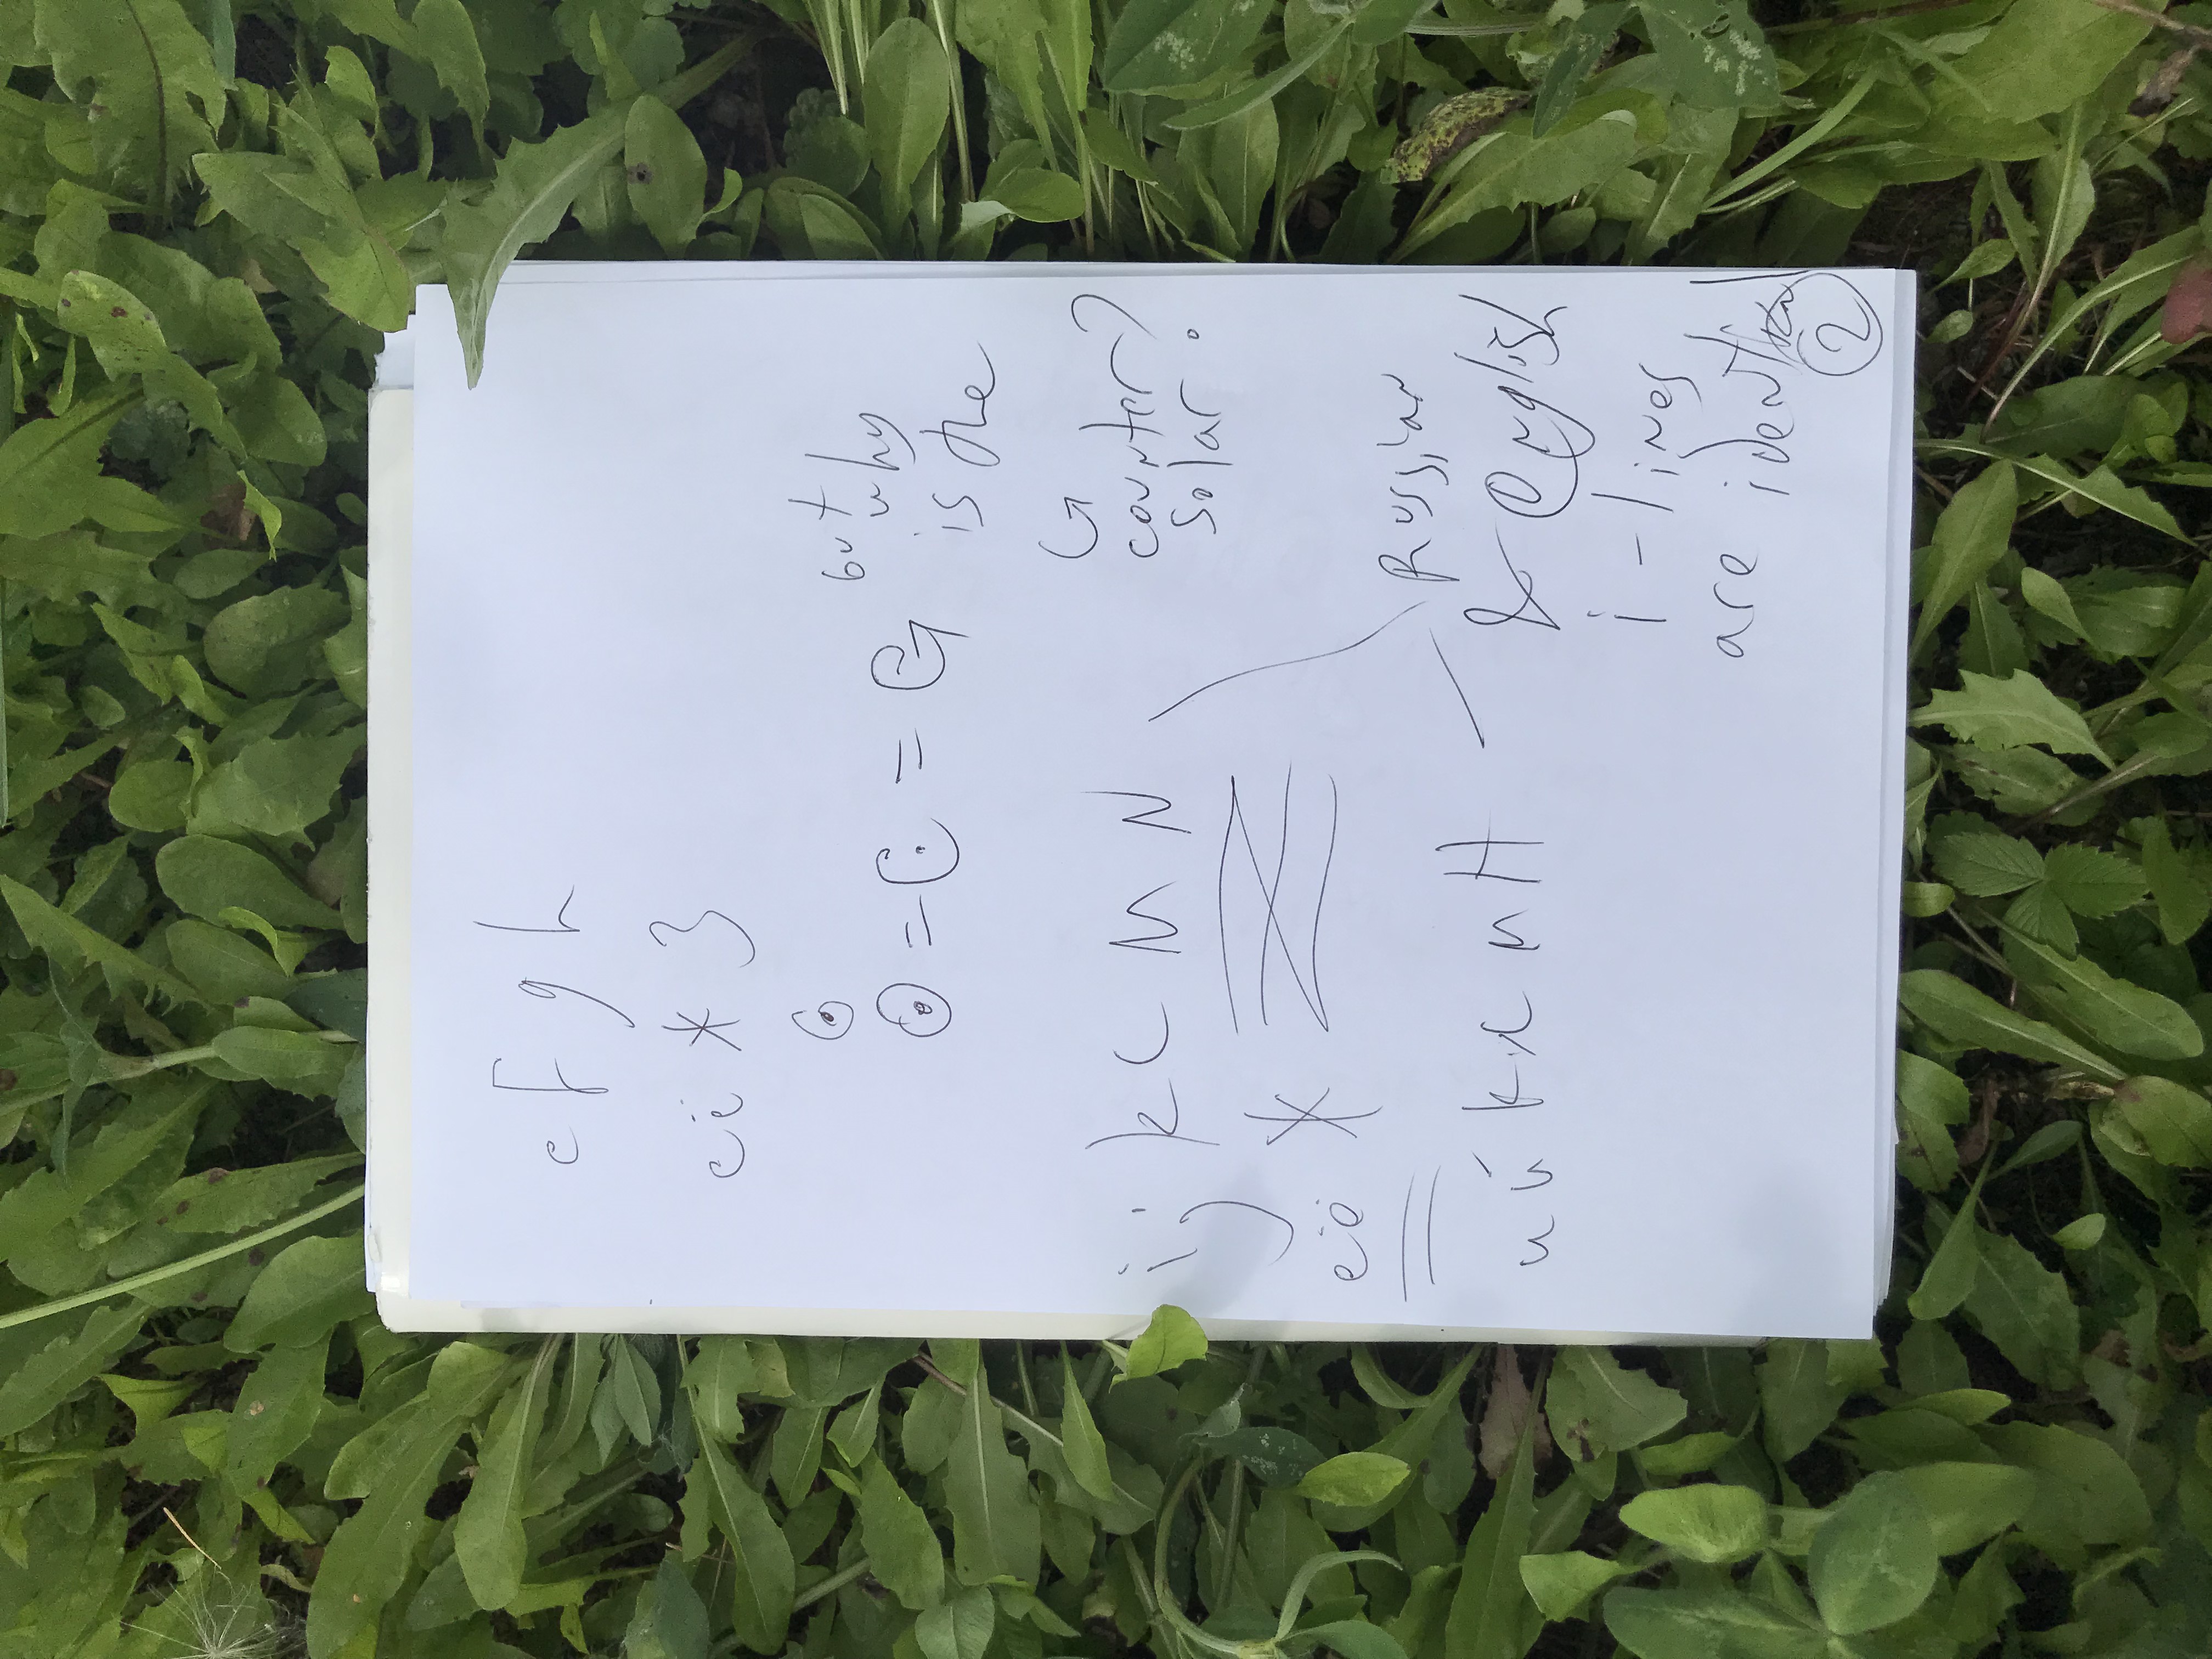 e F g h
e ё ж з
G
⊙ = C = G
but why
is the
G
counter?
solar.
i j k L M N
e ё ж
и й k л м H
Russian
& english
i - lines
are identical
2